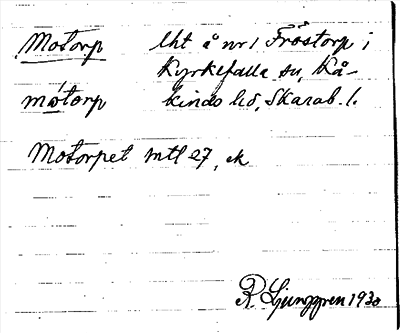 Motorp lht å nr 1 Fröstorp i
Kyrkefalla sn, Kå-
mótorp kinds hd, Skarab. l.
Motorpet mtl 27, ek
R. Ljunggren 1930